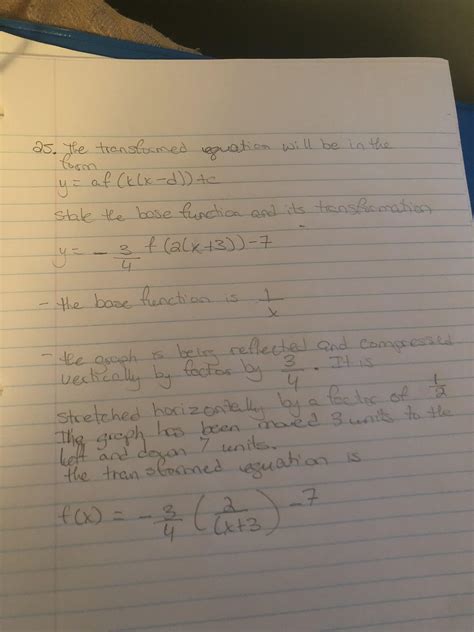 25. The transformed equation will be in the
form
y = af (k(x-d))+c
State the base function and its transformation
y = - 3/4 f(2(x+3))-7
- the base function is 1/x
- the graph is being reflected and compressed
vertically by factor by 3/4. It is
stretched horizontally by a factor of 1/2
The graph has been moved 3 units to the
left and down 7 units.
the transformed equation is
f(x) = - 3/4 ( 2/(x+3 ) -7